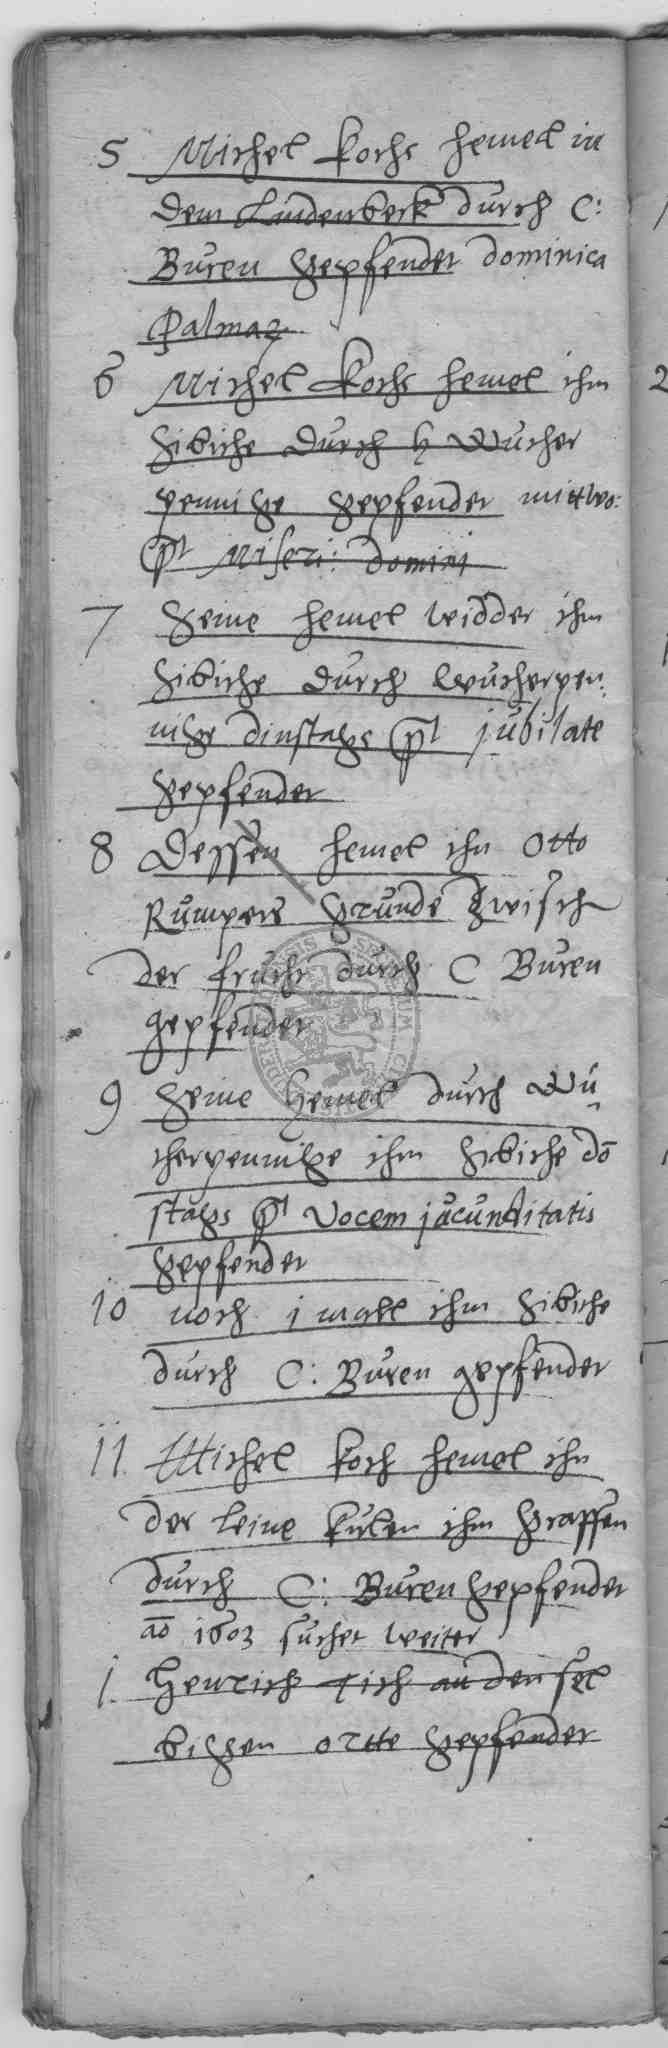 5 Michel Kochs hemel in
dem Lindenberk durch C:
Buren gepfendet dominica
Palmar
6 Michel Kochs hemel ihm
Sibiche durch H Wucher
pennige gepfendet mittwo:
pt Miseri: domini
7 Seine hemel widder ihm
Sibiche durch Wucherpen:
nige dinstags pt jubilate
gepfendet
8 Dessen hemel ihn Otto
Rumpers grunde zwisch
der frucht durch C Buren
gepfendet
9 Seine hemel durch Wu
cherpennige ihm Sibiche do
stags pt Vocem jucunditatis
gepfendet
10 noch 1 mahl ihm Sibiche
durch C: Buren gepfendet
11. Michel Koch hemel ihn
der leine kulen ihm graffen
durch C: Buren gepfendet
ao 1603 suchet weiter
1. Henrich au den sel
bigen ortte gepfendet